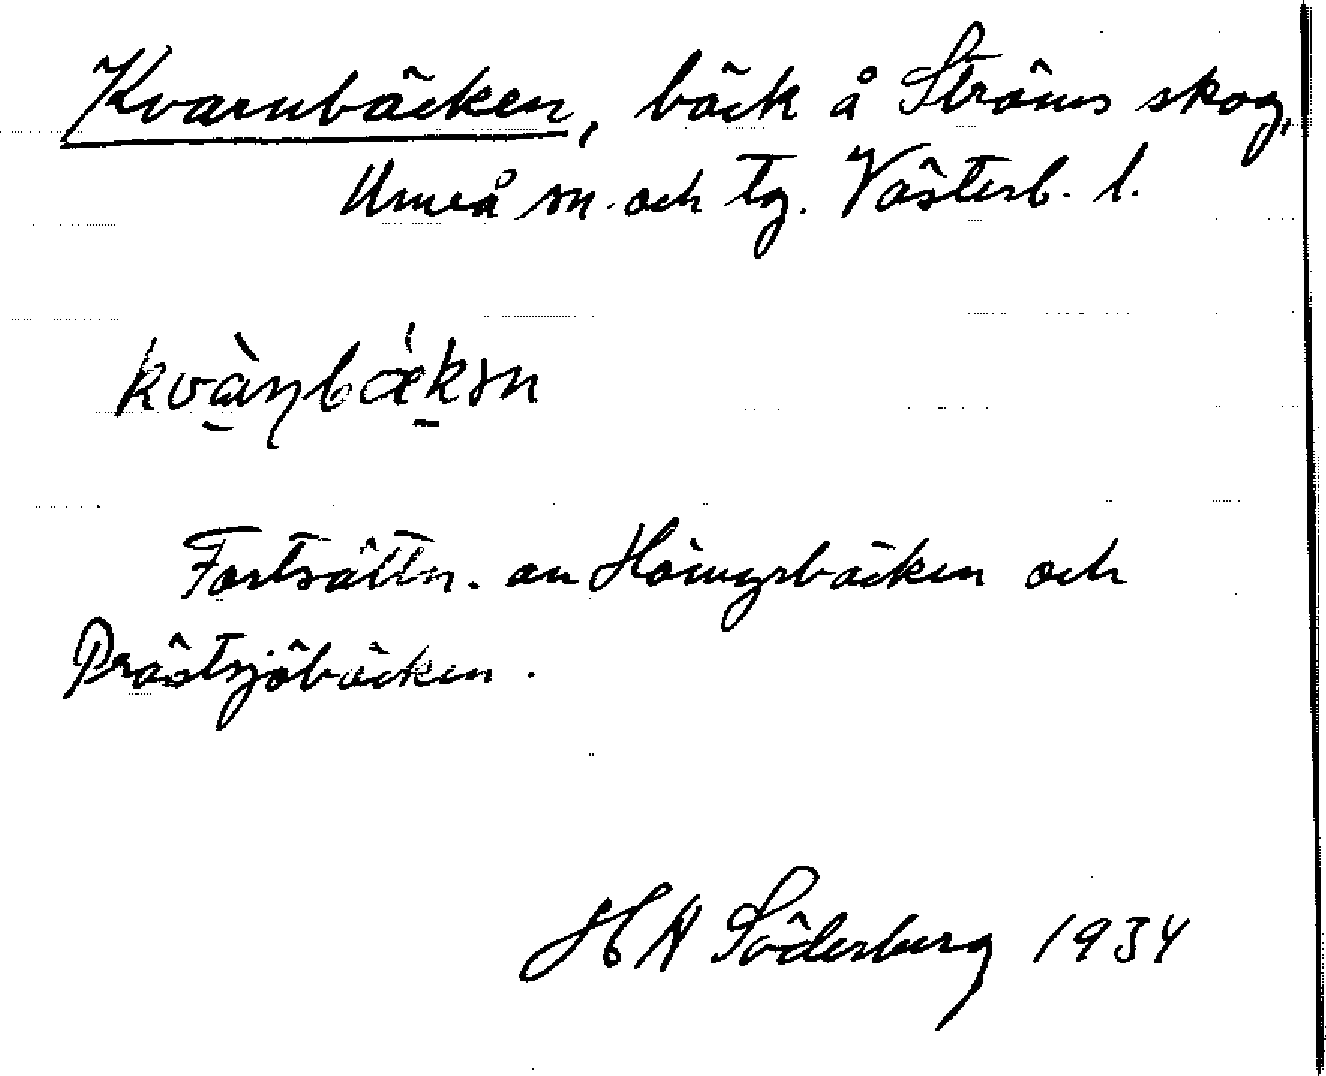 Kvarnbäcken, bäck å Ströms skog,
Umeå sn. och tg. Västerb. l.
kvàɳbǽkən
Fortsättn. av Hömyrbäcken och
Prästsjöbäcken.
H A Söderberg 1934